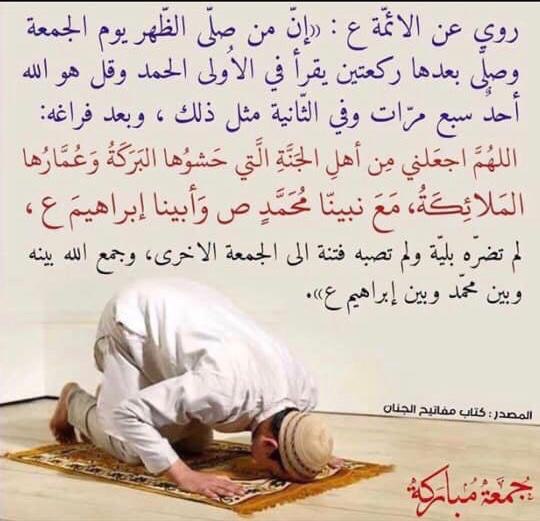 روي عن الائمّة ع : «إنّ من صلّى الظّهر يوم الجمعة
وصلّى بعدها ركعتين يقرأ في الاُولى الحمد وقل هو الله
أحدٌ سبع مرّات وفي الثّانية مثل ذلك ، وبعد فراغه:
اللهُمَّ اجعَلني مِن أهلِ الجَنَّةِ الَّتي حَشوُها البَرَكَةُ وَعُمَّارُها
المَلائِكَةُ، مَعَ نبينّا مُحَمَّدٍ ص وَأبينا إبراهيمَ ع ،
لم تضرّه بليّة ولم تصبه فتنة الى الجمعة الاخرى، وجمع الله بينه
وبين محمّد وبين إبراهيم ع».
المصدر : كتاب مفاتيح الجنان
جمعة مباركة